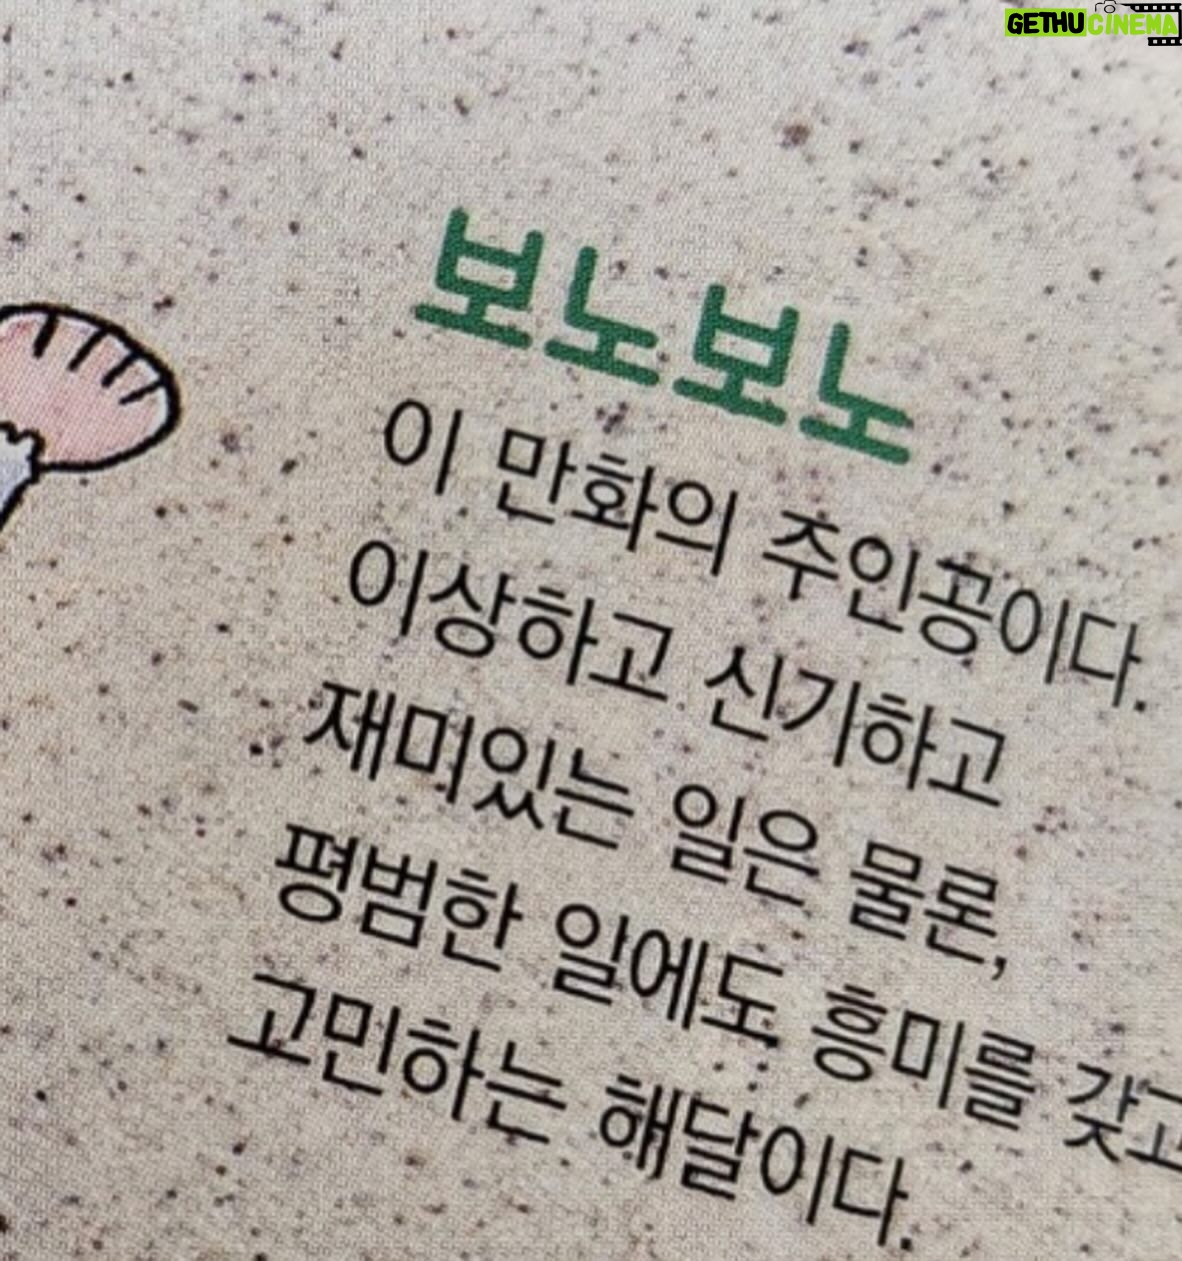 GETHUCINEMA
보노보노
이 만화의 주인공이다.
이상하고 신기하고
재미있는 일은 물론,
평범한 일에도 흥미를 갖고
고민하는 해달이다.